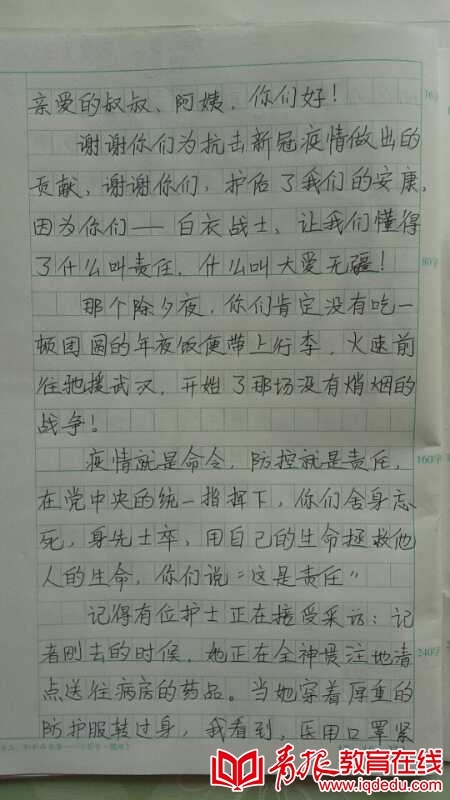 亲爱的叔叔、阿姨，你们好！
谢谢你们为抗击新冠疫情做出的
贡献，谢谢你们，护佑了我们的安康，
因为你们——白衣战士，让我们懂得
了什么叫责任，什么叫大爱无疆！
那个除夕夜，你们肯定没有吃一
顿团圆的年夜饭便带上行李，火速前
往驰援武汉，开始了那场没有硝烟的
战争！
疫情就是命令，防控就是责任，
在党中央的统一指挥下，你们舍身忘
死，身先士卒，用自己的生命拯救他
人的生命，你们说“这是责任”
记得有位护士正在接受采访：记
者刚去的时候，她正在全神贯注地清
点送往病房的药品。当她穿着厚重的
防护服转过身，我看到，医用口罩紧
80字
160字
240字
青报教育在线
.qdedu.net